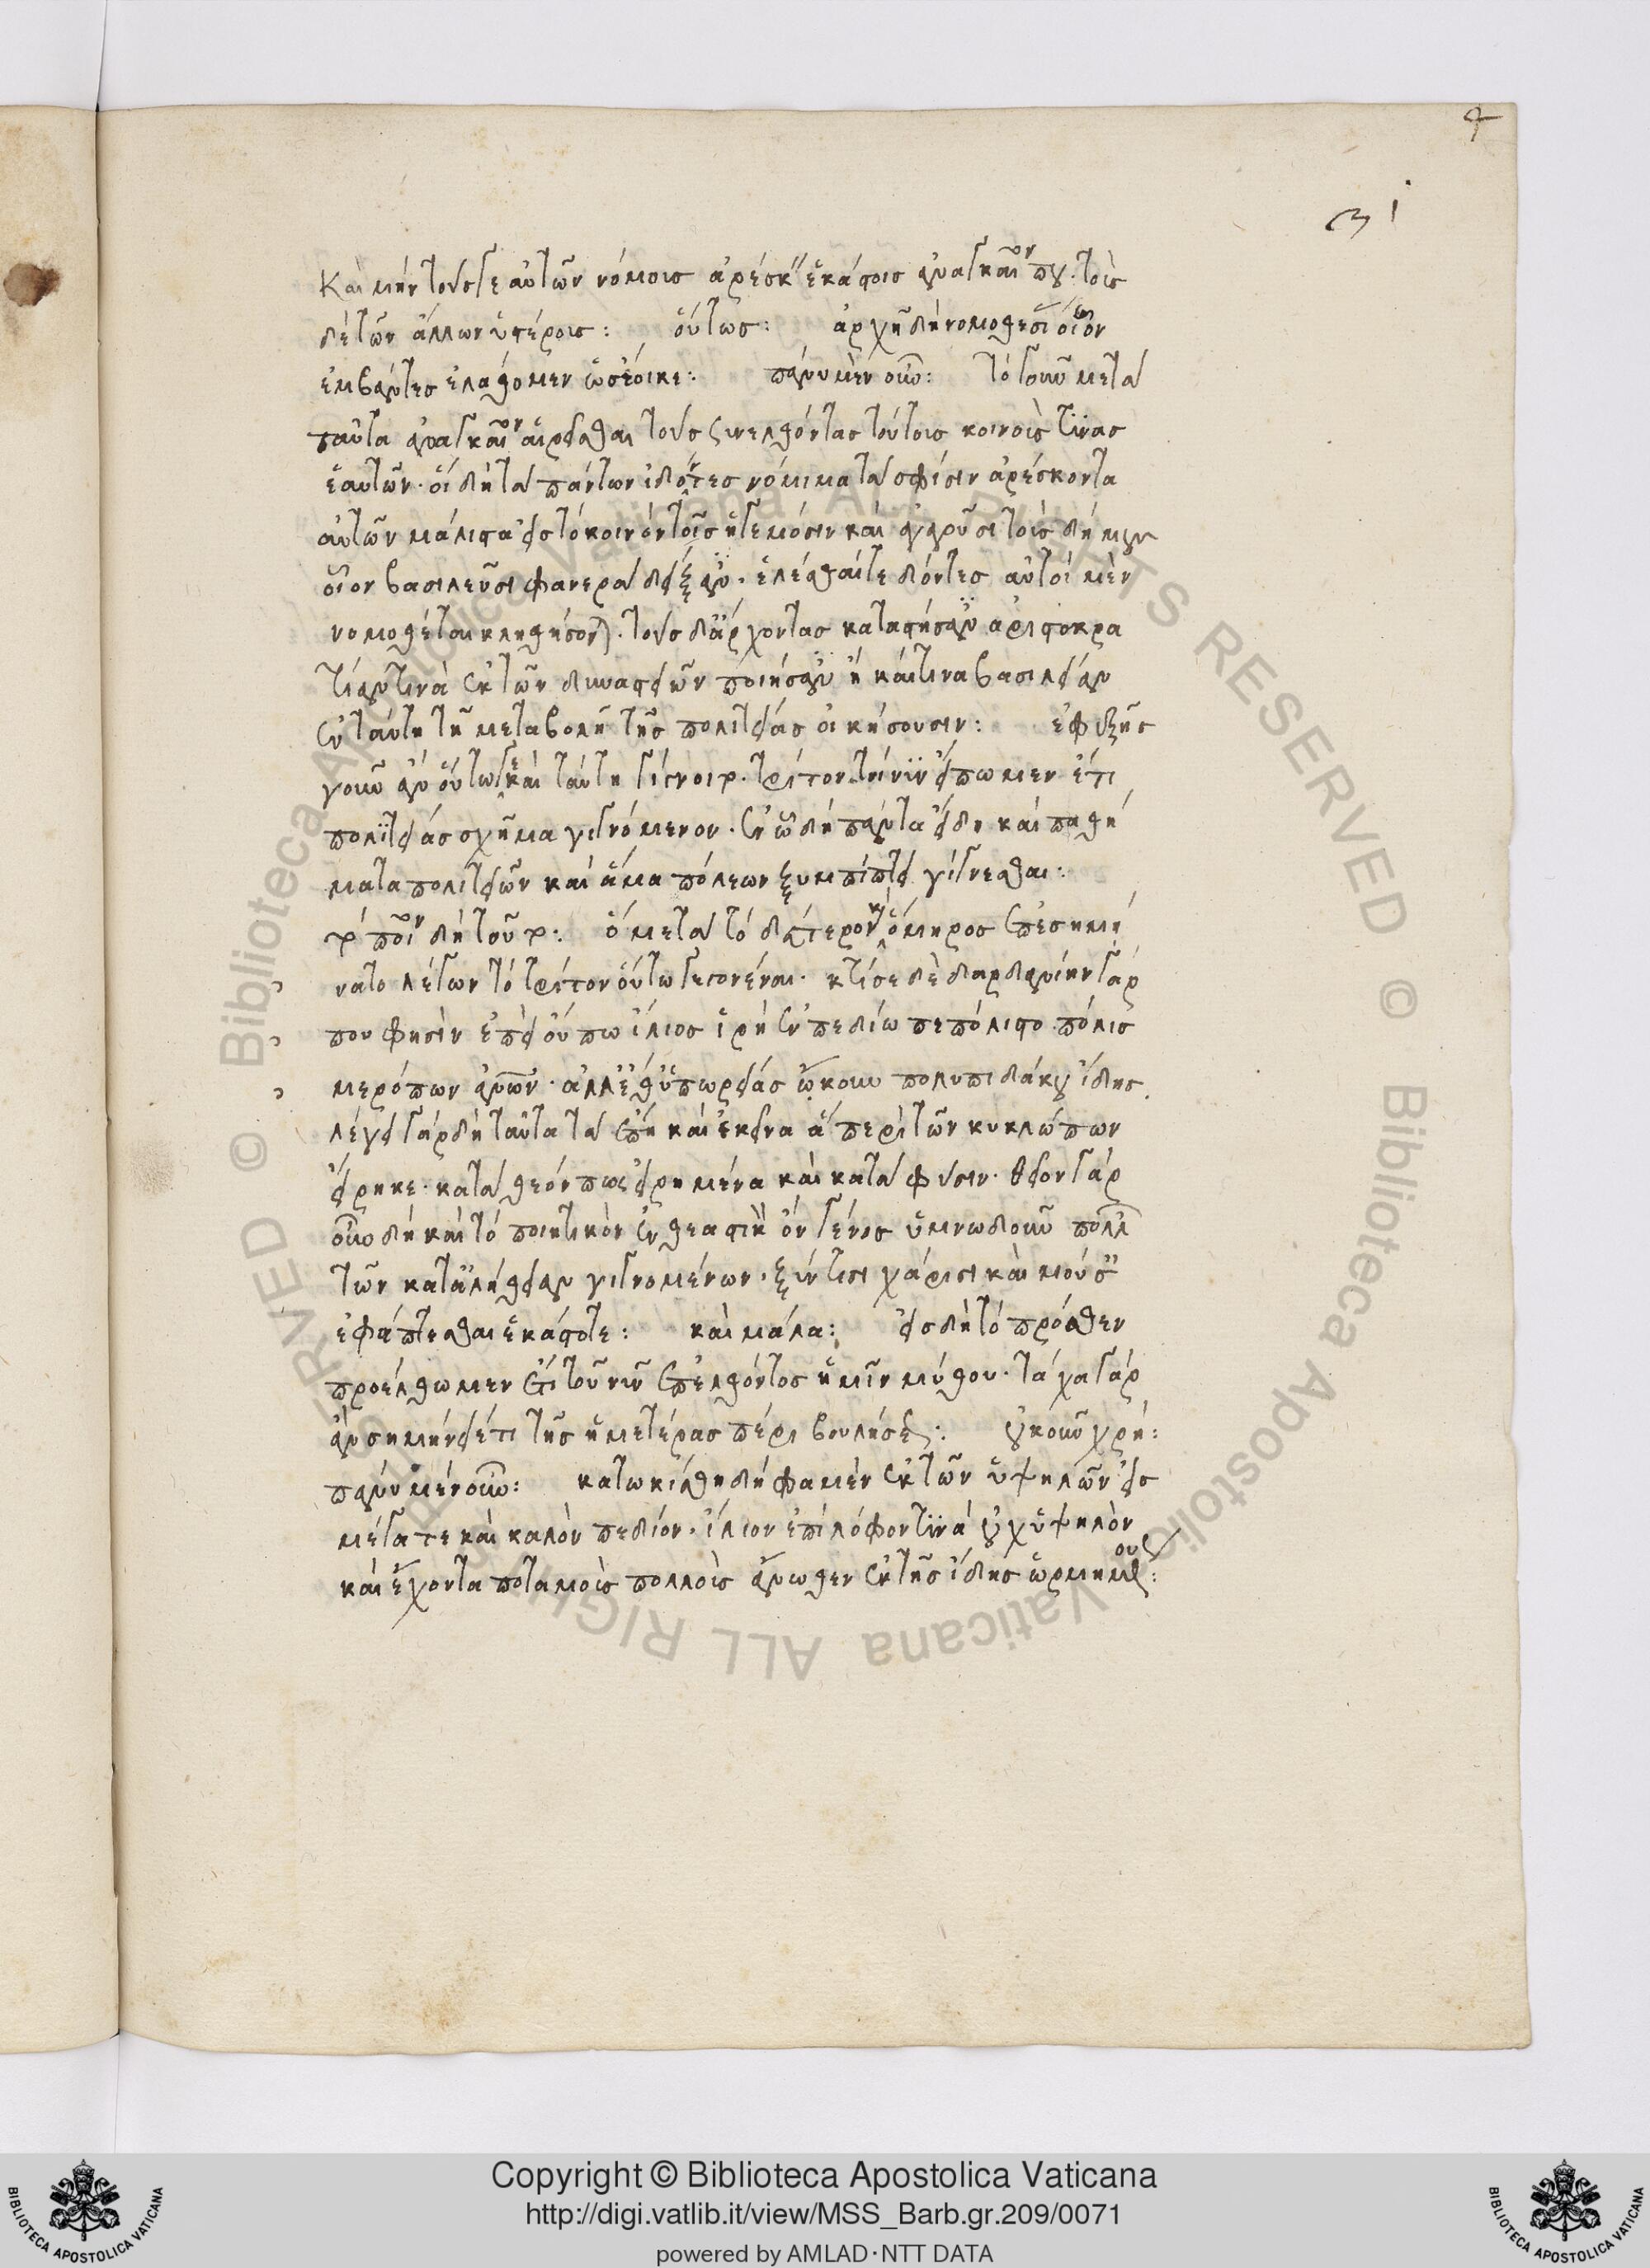 4
31
Καὶ μὴν τούς γε αὑτῶν νόμους ἀρέσκειν ἑκάστοις ἀναγκαῖόν που. τοὺς
δὲ τῶν ἄλλων ὑστέροις: οὕτως: ἀρχῇ δὴ νομοθεσίας οἷον
ἐμβάντες ἐλάθομεν ὡς ἔοικε: πάνυ μὲν οὖν: τὸ γοῦν μετὰ
ταῦτα ἀναγκαῖον αἱρεῖσθαι τοὺς συνελθόντας τούτους κοινούς τινας
ἑαυτῶν. οἳ δὴ τὰ πάντων ἰδόντες νόμιμα τά σφισιν ἀρέσκοντα
αὐτῶν μάλιστα εἰς τὸ κοινὸν τοῖς ἡγεμόσιν καὶ ἀγαγοῦσι τοὺς δήμους
οἷον βασιλεῦσι φανερὰ δείξαντες. ἑλέσθαι τε δόντες αὐτοὶ μὲν
νομοθέται κληθήσονται. τοὺς δὲ ἄρχοντας καταστήσαντες ἀριστοκρα
τίαν τινὰ ἐκ τῶν δυναστειῶν ποιήσαντες ἢ καί τινα βασιλείαν
ἐν ταύτῃ τῇ μεταβολῇ τῆς πολιτείας οἰκήσουσιν: ἐφεξῆς
γοῦν ἂν οὕτως γε καὶ ταύτῃ γίγνοιτο. τρίτον τοίνυν εἴπωμεν ἔτι
πολιτείας σχῆμα γιγνόμενον. ἐν ᾧ δὴ πάντα εἴδη καὶ παθή
ματα πολιτειῶν καὶ ἅμα πόλεων ξυμπίπτει γίγνεσθαι:
τὸ ποῖον δὴ τοῦτο: ὃ μετὰ τὸ δεύτερον καὶ ὅμηρος ἐπεσημή
νατο λέγων τὸ τρίτον οὕτω γεγονέναι. κτίσε δὲ δαρδανίην γάρ
που φησὶν ἐπεὶ οὔπω ἴλιος ἱρὴ ἐν πεδίῳ πεπόλιστο. πόλις
μερόπων ἀνθρώπων. ἀλλ' ἔθ' ὑπωρείας ᾤκουν πολυπιδάκου ἴδης.
λέγει γὰρ δὴ ταῦτα τὰ ἔπη καὶ ἐκεῖνα ἃ περὶ τῶν κυκλώπων
εἴρηκε. κατὰ θεόν πως εἰρημένα καὶ κατὰ φύσιν. θεῖον γὰρ
οὖν δὴ καὶ τὸ ποιητικὸν ἐνθεαστικὸν ὂν γένος ὑμνῳδοῦν πολλῶν
τῶν κατ' ἀλήθειαν γιγνομένων. ξύν τισι χάρισι καὶ μούσαις
ἐφάπτεσθαι ἑκάστοτε: καὶ μάλα: εἰς δὴ τὸ πρόσθεν
προέλθωμεν ἔτι τοῦ νῦν ἐπελθόντος ἡμῖν μύθου. τάχα γὰρ
ἂν σημήνειέ τι τῆς ἡμετέρας πέρι βουλήσεως: οὐκοῦν χρή:
πάνυ μὲν οὖν: κατῳκίσθη δή φαμεν ἐκ τῶν ὑψηλῶν εἰς
μέγα τε καὶ καλὸν πεδίον. ἴλιον ἐπὶ λόφον τινὰ οὐχ ὑψηλὸν
καὶ ἔχοντα ποταμοὺς πολλοὺς ἄνωθεν ἐκ τῆς ἴδης ὡρμημένους:
Copyright © Biblioteca Apostolica Vaticana
http://digi.vatlib.it/view/MSS_Barb.gr.209/0071
powered by AMLAD·NTT DATA